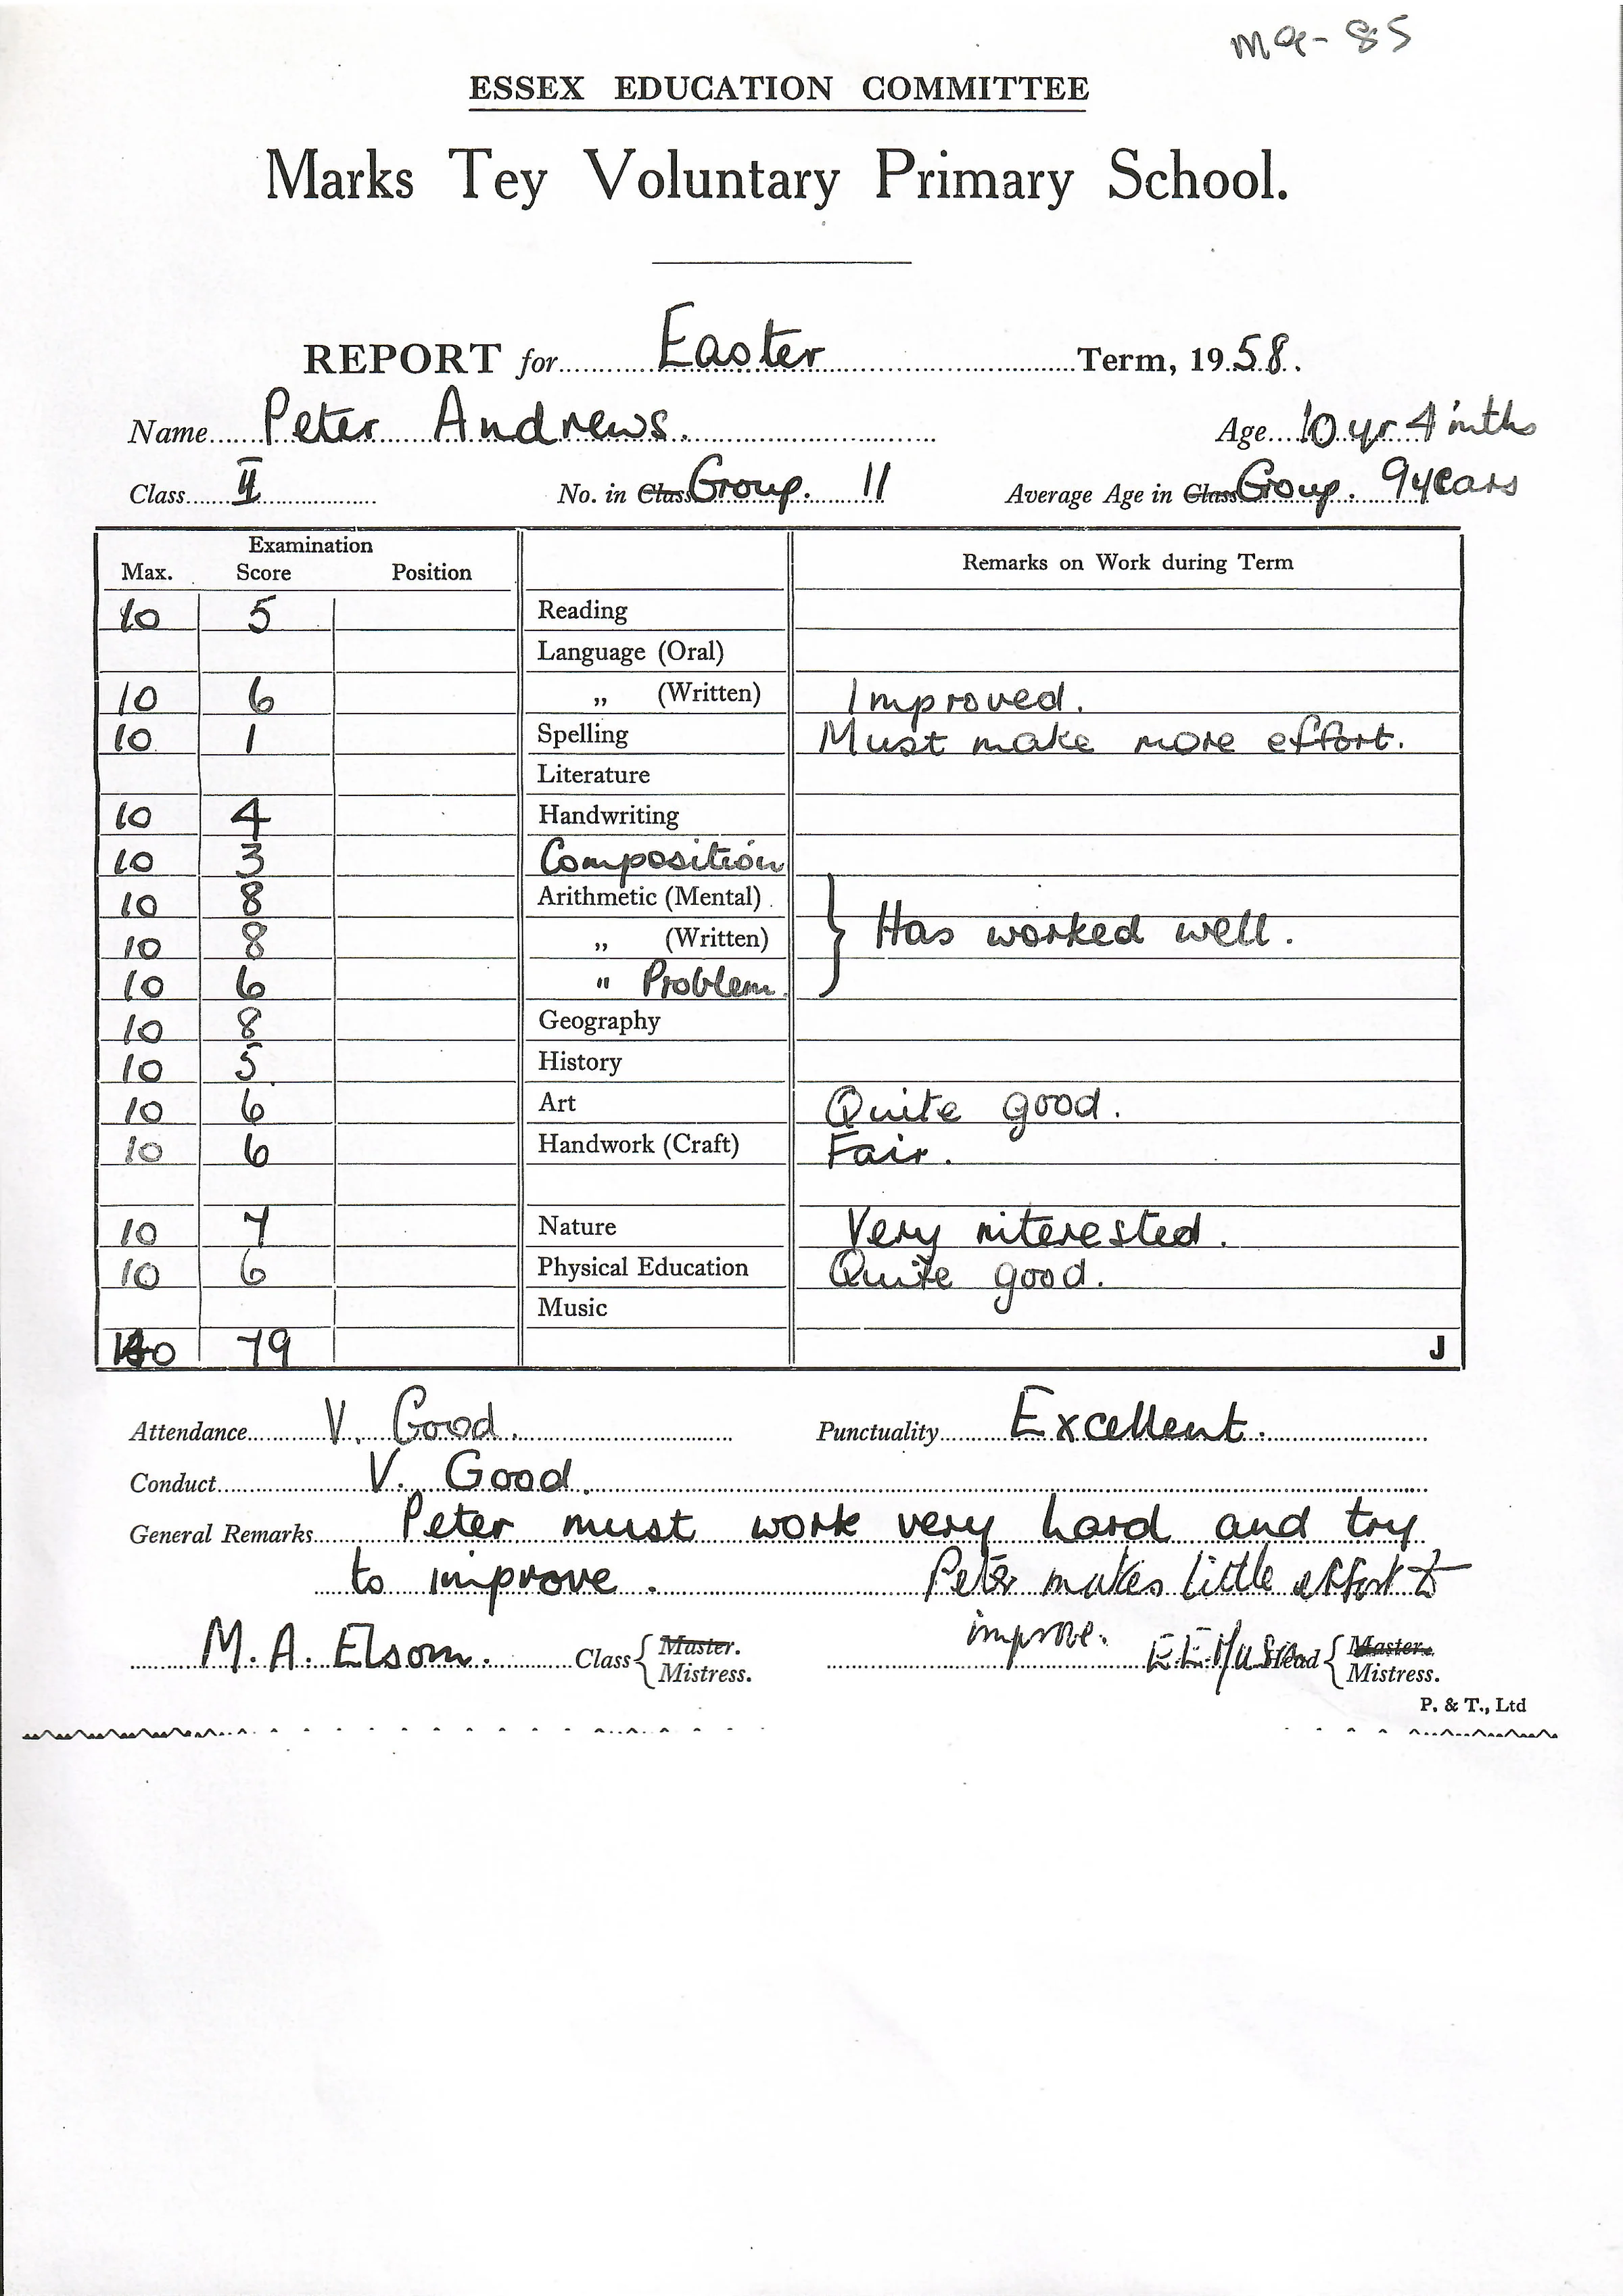 ma-85
ESSEX EDUCATION COMMITTEE
Marks Tey Voluntary Primary School.
REPORT for Easter Term, 1958.
Name Peter Andrews. Age 10 yr 4 mths
Class II No. in Class Group. 11 Average Age in Class Group. 9 years
Examination
Max. Score Position Remarks on Work during Term
10 5 Reading
Language (Oral)
10 6 „ (Written) Improved.
10 1 Spelling Must make more effort.
Literature
10 4 Handwriting
10 3 Composition
10 8 Arithmetic (Mental)
10 8 „ (Written) Has worked well.
10 6 " Problem.
10 8 Geography
10 5 History
10 6 Art Quite good.
10 6 Handwork (Craft) Fair.
10 7 Nature Very interested.
10 6 Physical Education Quite good.
Music
79 J
Attendance V. Good. Punctuality Excellent.
Conduct V. Good.
General Remarks Peter must work very hard and try
to improve. Peter makes little effort to
improve.
M. A. Elsom. Class { Master. Mistress. E.E. Head { Master. Mistress.
P. & T., Ltd